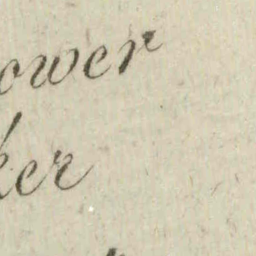 ower
ker